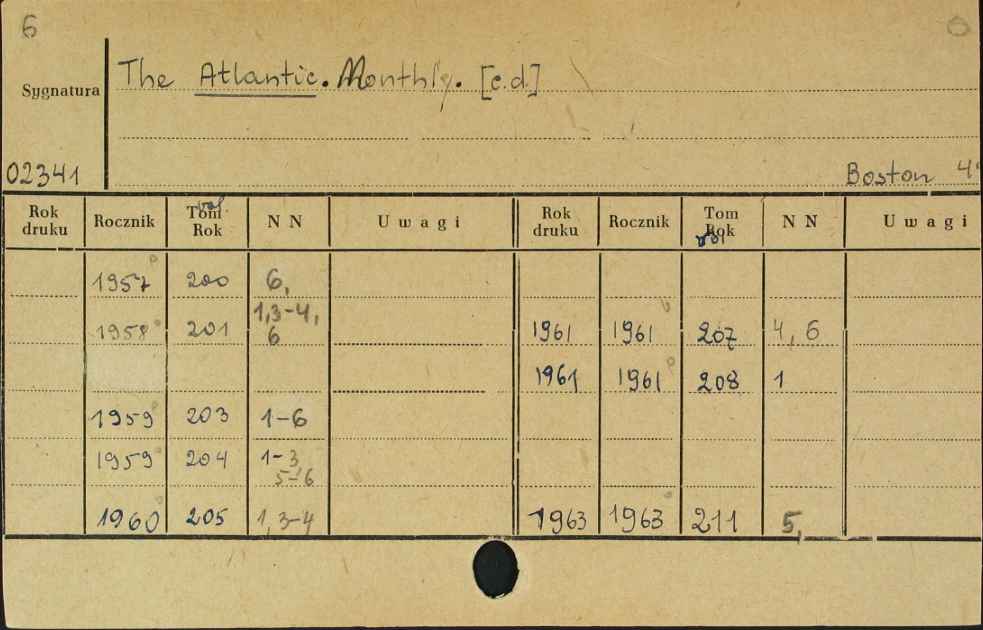 6
Sygnatura
The Atlantic. Monthly. [c.d]
02341
Boston 4°
Rok druku Rocznik Tom Rok vol. N N Uwagi Rok druku Rocznik Tom Rok vol N N Uwagi
1957 200 6,
1958 201 1,3-4, 6 1961 1961 207 4, 6
1961 1961 208 1
1959 203 1-6
1959 204 1-3 5-6
1960 205 1, 3-4 1963 1963 211 5,